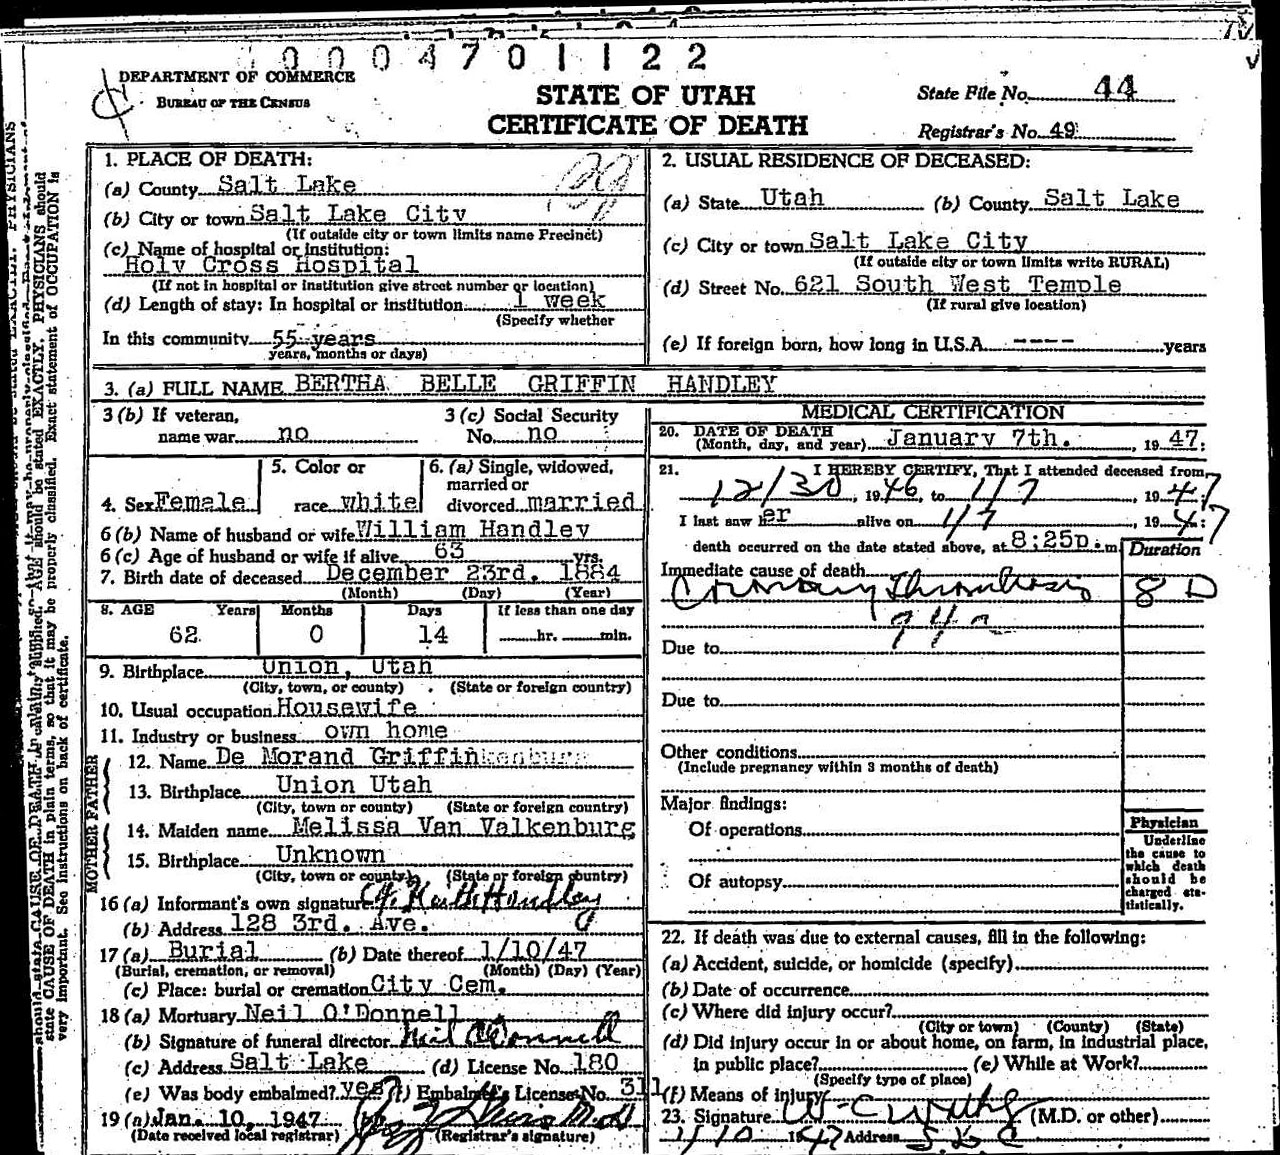 0004701122
DEPARTMENT OF COMMERCE
BUREAU OF THE CENSUS
STATE OF UTAH
CERTIFICATE OF DEATH
State File No. 44
Registrar's No. 49
1. PLACE OF DEATH:
(a) County Salt Lake
(b) City or town Salt Lake City
(If outside city or town limits name Precinct)
(c) Name of hospital or institution:
Holy Cross Hospital
(If not in hospital or institution give street number or location)
(d) Length of stay: In hospital or institution 1 week
(Specify whether
In this community 55 years
years, months or days)
2. USUAL RESIDENCE OF DECEASED:
(a) State Utah (b) County Salt Lake
(c) City or town Salt Lake City
(If outside city or town limits write RURAL)
(d) Street No. 621 South West Temple
(If rural give location)
(e) If foreign born, how long in U.S.A. ---- years
3. (a) FULL NAME BERTHA BELLE GRIFFIN HANDLEY
3 (b) If veteran, name war no
3 (c) Social Security No. no
4. Sex Female
5. Color or race white
6. (a) Single, widowed, married or divorced married
6 (b) Name of husband or wife William Handley
6 (c) Age of husband or wife if alive 63 yrs.
7. Birth date of deceased December 23rd. 1884
(Month) (Day) (Year)
8. AGE Years Months Days If less than one day
62 0 14 hr. min.
9. Birthplace Union, Utah
(City, town, or county) (State or foreign country)
10. Usual occupation Housewife
11. Industry or business own home
FATHER
12. Name De Morand Griffin
13. Birthplace Union Utah
(City, town or county) (State or foreign country)
MOTHER
14. Maiden name Melissa Van Valkenburg
15. Birthplace Unknown
(City, town or county) (State or foreign country)
16 (a) Informant's own signature Keith Handley
(b) Address 128 3rd. Ave.
17 (a) Burial (b) Date thereof 1/10/47
(Burial, cremation, or removal) (Month) (Day) (Year)
(c) Place: burial or cremation City Cem.
18 (a) Mortuary Neil O'Donnell
(b) Signature of funeral director Neil O'Donnell
(c) Address Salt Lake (d) License No. 180
(e) Was body embalmed? yes (f) Embalmer's License No. 311
19 (a) Jan. 10, 1947
(Date received local registrar) (Registrar's signature)
MEDICAL CERTIFICATION
20. DATE OF DEATH
(Month, day, and year) January 7th. , 1947.
21. I HEREBY CERTIFY, That I attended deceased from
12/30, 1946, to 1/7, 1947
I last saw her alive on 1/7, 1947;
death occurred on the date stated above, at 8:25p.m.
Duration
Immediate cause of death
Coronary Thrombosis 8 D
94a
Due to
Due to
Other conditions
(Include pregnancy within 3 months of death)
Major findings:
Of operations
Of autopsy
Physician
Underline the cause to which death should be charged statistically.
22. If death was due to external causes, fill in the following:
(a) Accident, suicide, or homicide (specify)
(b) Date of occurrence
(c) Where did injury occur?
(City or town) (County) (State)
(d) Did injury occur in or about home, on farm, in industrial place,
in public place? (e) While at Work?
(Specify type of place)
(f) Means of injury
23. Signature (M.D. or other)
1/10 1947 Address S.L.C.
state CAUSE OF DEATH in plain terms, so that it may be properly classified. Exact statement of OCCUPATION is
very important. See instructions on back of certificate.